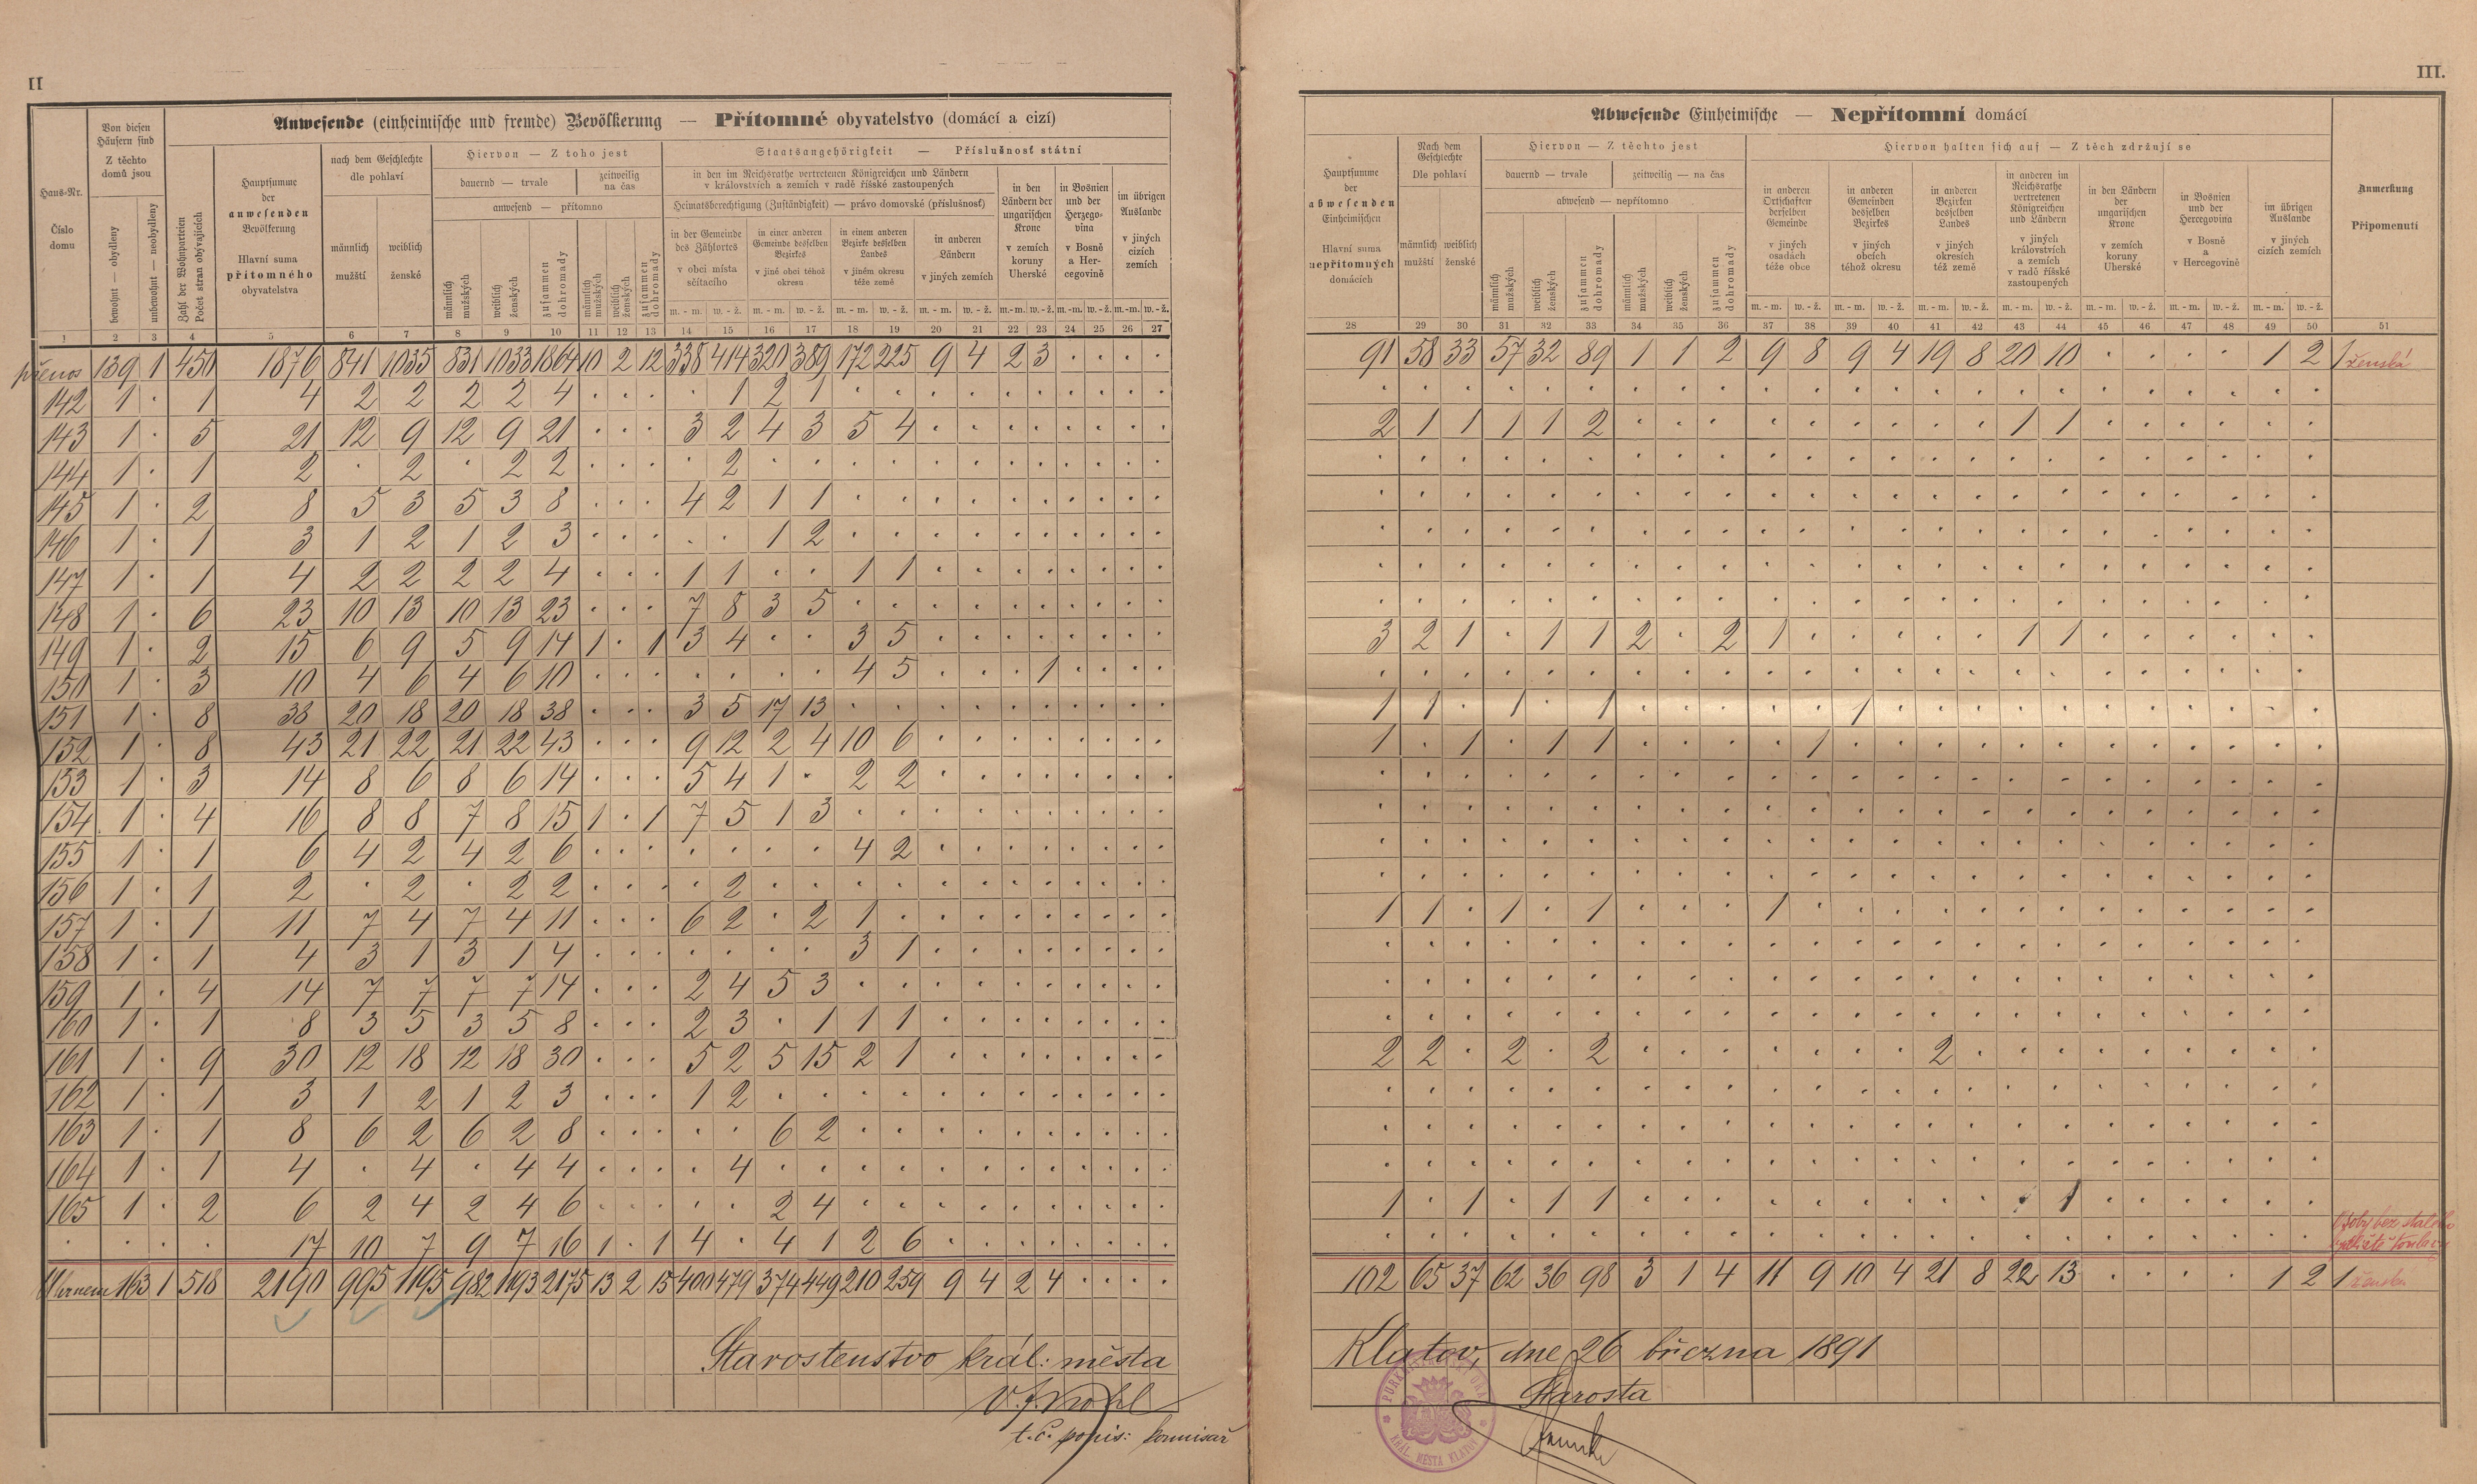 II
Anwesende (einheimische und fremde) Bevölkerung — Přítomné obyvatelstvo (domácí a cizí)
Haus-Nr.
Číslo domu
Von diesen Häusern sind
Z těchto domů jsou
bewohnt — obydleny
unbewohnt — neobydleny
Zahl der Wohnparteien
Počet stran obývajících
Hauptsumme der anwesenden Bevölkerung
Hlavní suma přítomného obyvatelstva
nach dem Geschlechte
dle pohlaví
männlich mužští
weiblich ženské
Hiervon — Z toho jest
dauernd — trvale
zeitweilig na čas
anwesend — přítomno
männlich mužských
weiblich ženských
zusammen dohromady
männlich mužských
weiblich ženských
zusammen dohromady
Staatsangehörigkeit — Příslušnosť státní
in den im Reichsrathe vertretenen Königreichen und Ländern
v královstvích a zemích v radě říšské zastoupených
Heimatsberechtigung (Zuständigkeit) — právo domovské (příslušnosť)
in der Gemeinde des Zählortes
v obci místa sčítacího
in einer anderen Gemeinde desselben Bezirkes
v jiné obci téhož okresu
in einem anderen Bezirke desselben Landes
v jiném okresu téže země
in anderen Ländern
v jiných zemích
in den Ländern der ungarischen Krone
v zemích koruny Uherské
in Bosnien und der Herzegovina
v Bosně a Hercegovině
im übrigen Auslande
v jiných cizích zemích
m. - m. w. - ž. m. - m. w. - ž. m. - m. w. - ž. m. - m. w. - ž. m.-m. w.-ž. m.-m. w.-ž. m.-m. w.-ž.
1 2 3 4 5 6 7 8 9 10 11 12 13 14 15 16 17 18 19 20 21 22 23 24 25 26 27
přenos 139 1 450 1876 841 1035 831 1033 1864 10 2 12 338 414 320 389 172 225 9 4 2 3 . . . .
142 1 . 1 4 2 2 2 2 4 . . . . 1 2 1 . . . . . . . . . .
143 1 . 5 21 12 9 12 9 21 . . . 3 2 4 3 5 4 . . . . . . . .
144 1 . 1 2 . 2 . 2 2 . . . . 2 . . . . . . . . . . . .
145 1 . 2 8 5 3 5 3 8 . . . 4 2 1 1 . . . . . . . . . .
146 1 . 1 3 1 2 1 2 3 . . . . . 1 2 . . . . . . . . . .
147 1 . 1 4 2 2 2 2 4 . . . 1 1 . . 1 1 . . . . . . . .
148 1 . 6 23 10 13 10 13 23 . . . 7 8 3 5 . . . . . . . . . .
149 1 . 2 15 6 9 5 9 14 1 . 1 3 4 . . 3 5 . . . . . . . .
150 1 . 3 10 4 6 4 6 10 . . . . . . . 4 5 . . . 1 . . . .
151 1 . 8 38 20 18 20 18 38 . . . 3 5 17 13 . . . . . . . . . .
152 1 . 8 43 21 22 21 22 43 . . . 9 12 2 4 10 6 . . . . . . . .
153 1 . 3 14 8 6 8 6 14 . . . 5 4 1 . 2 2 . . . . . . . .
154 1 . 4 16 8 8 7 8 15 1 . 1 7 5 1 3 . . . . . . . . . .
155 1 . 1 6 4 2 4 2 6 . . . . . . . 4 2 . . . . . . . .
156 1 . 1 2 . 2 . 2 2 . . . . 2 . . . . . . . . . . . .
157 1 . 1 11 7 4 7 4 11 . . . 6 2 . 2 1 . . . . . . . . .
158 1 . 1 4 3 1 3 1 4 . . . . . . . 3 1 . . . . . . . .
159 1 . 4 14 7 7 7 7 14 . . . 2 4 5 3 . . . . . . . . . .
160 1 . 1 8 3 5 3 5 8 . . . 2 3 . 1 1 1 . . . . . . . .
161 1 . 9 30 12 18 12 18 30 . . . 5 2 5 15 2 1 . . . . . . . .
162 1 . 1 3 1 2 1 2 3 . . . 1 2 . . . . . . . . . . . .
163 1 . 1 8 6 2 6 2 8 . . . . . 6 2 . . . . . . . . . .
164 1 . 1 4 . 4 . 4 4 . . . . 4 . . . . . . . . . . . .
165 1 . 2 6 2 4 2 4 6 . . . . . 2 4 . . . . . . . . . .
. . . . 17 10 7 9 7 16 1 . 1 4 . 4 1 2 6 . . . . . . . .
Uhrnem 163 1 518 2190 995 1195 982 1193 2175 13 2 15 400 479 374 449 210 259 9 4 2 4 . . . .
Starostenstvo král: města
t. č. popis: komisař
III.
Abwesende Einheimische — Nepřítomní domácí
Hauptsumme der abwesenden Einheimischen
Hlavní suma nepřítomných domácích
Nach dem Geschlechte
Dle pohlaví
männlich mužští
weiblich ženské
Hiervon — Z těchto jest
dauernd — trvale
zeitweilig — na čas
abwesend — nepřítomno
männlich mužských
weiblich ženských
zusammen dohromady
männlich mužských
weiblich ženských
zusammen dohromady
Hiervon halten sich auf — Z těch zdržují se
in anderen Ortschaften derselben Gemeinde
v jiných osadách téže obce
in anderen Gemeinden desselben Bezirkes
v jiných obcích téhož okresu
in anderen Bezirken desselben Landes
v jiných okresích též země
in anderen im Reichsrathe vertretenen Königreichen und Ländern
v jiných královstvích a zemích v radě říšské zastoupených
in den Ländern der ungarischen Krone
v zemích koruny Uherské
in Bosnien und der Hercegovina
v Bosně a v Hercegovině
im übrigen Auslande
v jiných cizích zemích
Anmerkung
Připomenutí
m. - m. w. - ž. m. - m. w. - ž. m. - m. w. - ž. m. - m. w. - ž. m. - m. w. - ž. m. - m. w. - ž. m. - m. w. - ž.
28 29 30 31 32 33 34 35 36 37 38 39 40 41 42 43 44 45 46 47 48 49 50 51
91 58 33 57 32 89 1 1 2 9 8 9 4 19 8 20 10 . . . . 1 2 1 ženská
. . . . . . . . . . . . . . . . . . . . . . .
2 1 1 1 1 2 . . . . . . . . . 1 1 . . . . . .
. . . . . . . . . . . . . . . . . . . . . . .
. . . . . . . . . . . . . . . . . . . . . . .
. . . . . . . . . . . . . . . . . . . . . . .
. . . . . . . . . . . . . . . . . . . . . . .
. . . . . . . . . . . . . . . . . . . . . . .
3 2 1 . 1 1 2 . 2 1 . . . . . 1 1 . . . . . .
. . . . . . . . . . . . . . . . . . . . . . .
1 1 . 1 . 1 . . . . . 1 . . . . . . . . . . .
1 . 1 . 1 1 . . . . 1 . . . . . . . . . . . .
. . . . . . . . . . . . . . . . . . . . . . .
. . . . . . . . . . . . . . . . . . . . . . .
. . . . . . . . . . . . . . . . . . . . . . .
. . . . . . . . . . . . . . . . . . . . . . .
1 1 . 1 . 1 . . . 1 . . . . . . . . . . . . .
. . . . . . . . . . . . . . . . . . . . . . .
. . . . . . . . . . . . . . . . . . . . . . .
. . . . . . . . . . . . . . . . . . . . . . .
2 2 . 2 . 2 . . . . . . . 2 . . . . . . . . .
. . . . . . . . . . . . . . . . . . . . . . .
. . . . . . . . . . . . . . . . . . . . . . .
. . . . . . . . . . . . . . . . . . . . . . .
1 . 1 . 1 1 . . . . . . . . . . 1 . . . . . .
. . . . . . . . . . . . . . . . . . . . . . . Osoby bez stalého
102 65 37 62 36 98 3 1 4 11 9 10 4 21 8 22 13 . . . . 1 2 1 ženská
Klatov, dne 26 března 1891
Starosta
KRÁL. MĚSTA KLATOV